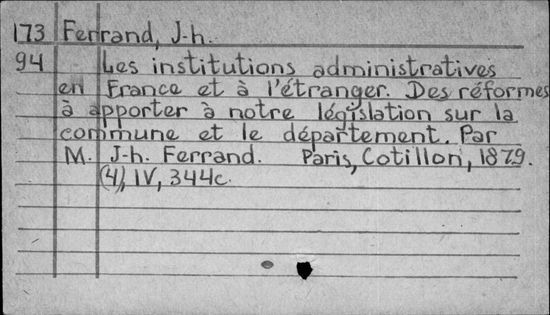 173 Ferrand, J-h.
94 Les institutions administratives
en France et à l'étranger. Des réformes
à apporter à notre législation sur la
commune et le département. Par
M. J-h. Ferrand. Paris, Cotillon, 1879.
(4), IV, 344c.